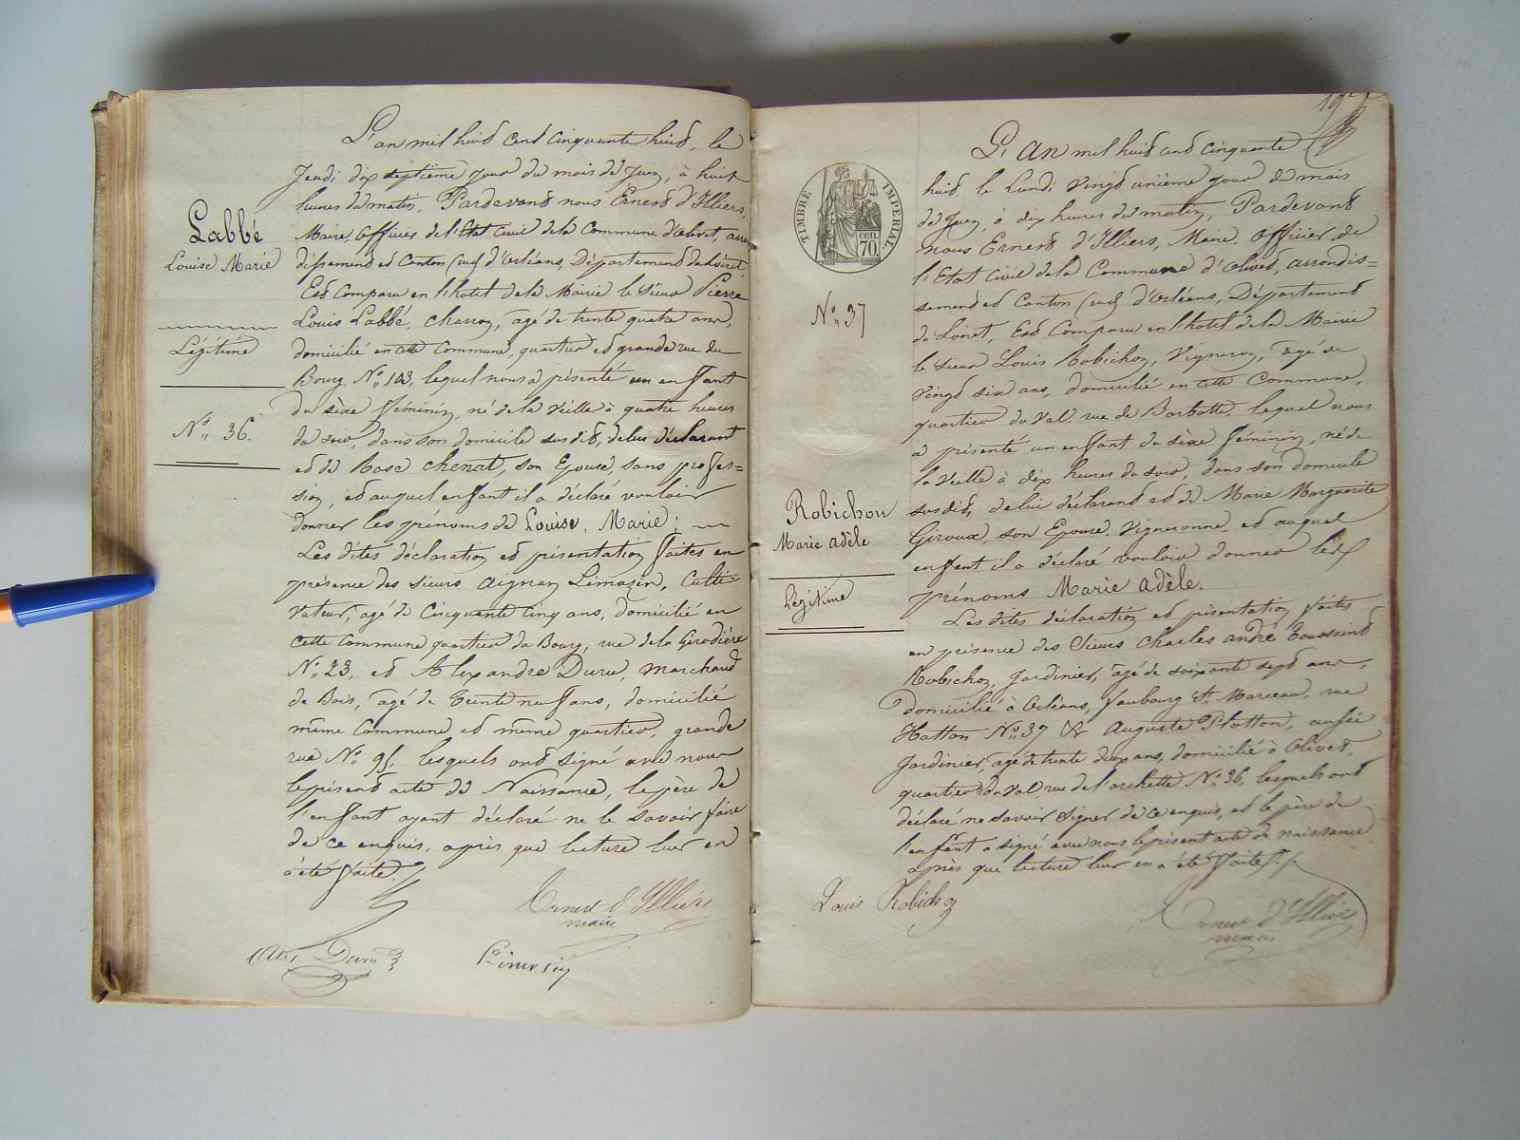 L'an mil huit cent cinquante huit, le
Jeudi dix septième jour du mois de Juin, à huit
heures du matin, Pardevant nous Ernest d'Illiers,
Maire, Officier de l'Etat Civil de la Commune d'Olivet, arron
dissement et Canton (sud) d'Orléans, Département du Loiret
Est Comparu en l'hotel de la Mairie le Sieur Pierre
Louis Labbé, charron, agé de trente quatre ans,
domicilié en cette Commune, quartier et grande rue du
Bourg, No 103, lequel nous a présenté un enfant
du sèxe féminin, né de la veille à quatre heures
du soir, dans son domicile susdit, de lui déclarant
et de Rose Chenat, son Epouse, sans profes=
sion, et auquel enfant il a déclaré vouloir
donner les prénoms de Louise, Marie;
Les dites déclaration et présentation faites en
présence des sieurs Aignan Limazin, Culti=
vateur, agé de Cinquante cinq ans, domicilié en
cette commune quartier du Bourg, rue de la Girodière
No 23, et Alexandre Duru, marchand
de Bois, agé de trente neuf ans, domicilié
même Commune et même quartier, grande
rue No 95, lesquels ont signé avec nous
le présent acte de Naissance, le père de
l'enfant ayant déclaré ne le savoir faire
de ce enquis, après que lecture leur en
a été faite
Ernest d'Illiers
maire
Duru
Limosin
Labbé
Louise Marie
Légitime
No 36.
19
L'AN mil huit cent cinquante
huit, le Lundi vingt unième jour du mois
de Juin, à dix heures du matin, Pardevant
nous Ernest d'Illiers, Maire, Officier de
l'Etat Civil de la Commune d'Olivet, arrondis=
sement et Canton (sud) d'Orléans, Département
du Loiret, Est Comparu en l'hotel de la Mairie
le Sieur Louis Robichon, Vigneron, agé de
vingt six ans, domicilié en cette Commune,
quartier du Val, rue de Barbotte, lequel nous
a présenté un enfant du sèxe féminin, né de
la veille à dix heures du soir, dans son domicile
susdit, de lui déclarant et de Marie Marguerite
Giroux, son Epouse, Vigneronne, et auquel
enfant il a déclaré vouloir donner les
prénoms Marie Adèle.
Les dites déclaration et présentation faites
en présence des Sieurs Charles André Toussaint
Robichon, Jardinier, agé de soixante sept ans,
domicilié à Orléans, faubourg St Marceau, rue
Hatton No 37 & Auguste Hatton, aussi
Jardinier, agé de trente deux ans, domicilié à Olivet,
quartier du Val rue de l'archette No 36, lesquels ont
déclaré ne savoir signer de ce enquis, et le père de
l'enfant a signé avec nous le présent acte de naissance
après que lecture leur en a été faite
Louis Robichon
Ernest d'Illiers
maire
TIMBRE IMPERIAL
cen. 70.
No 37
Robichon
Marie Adèle
Légitime